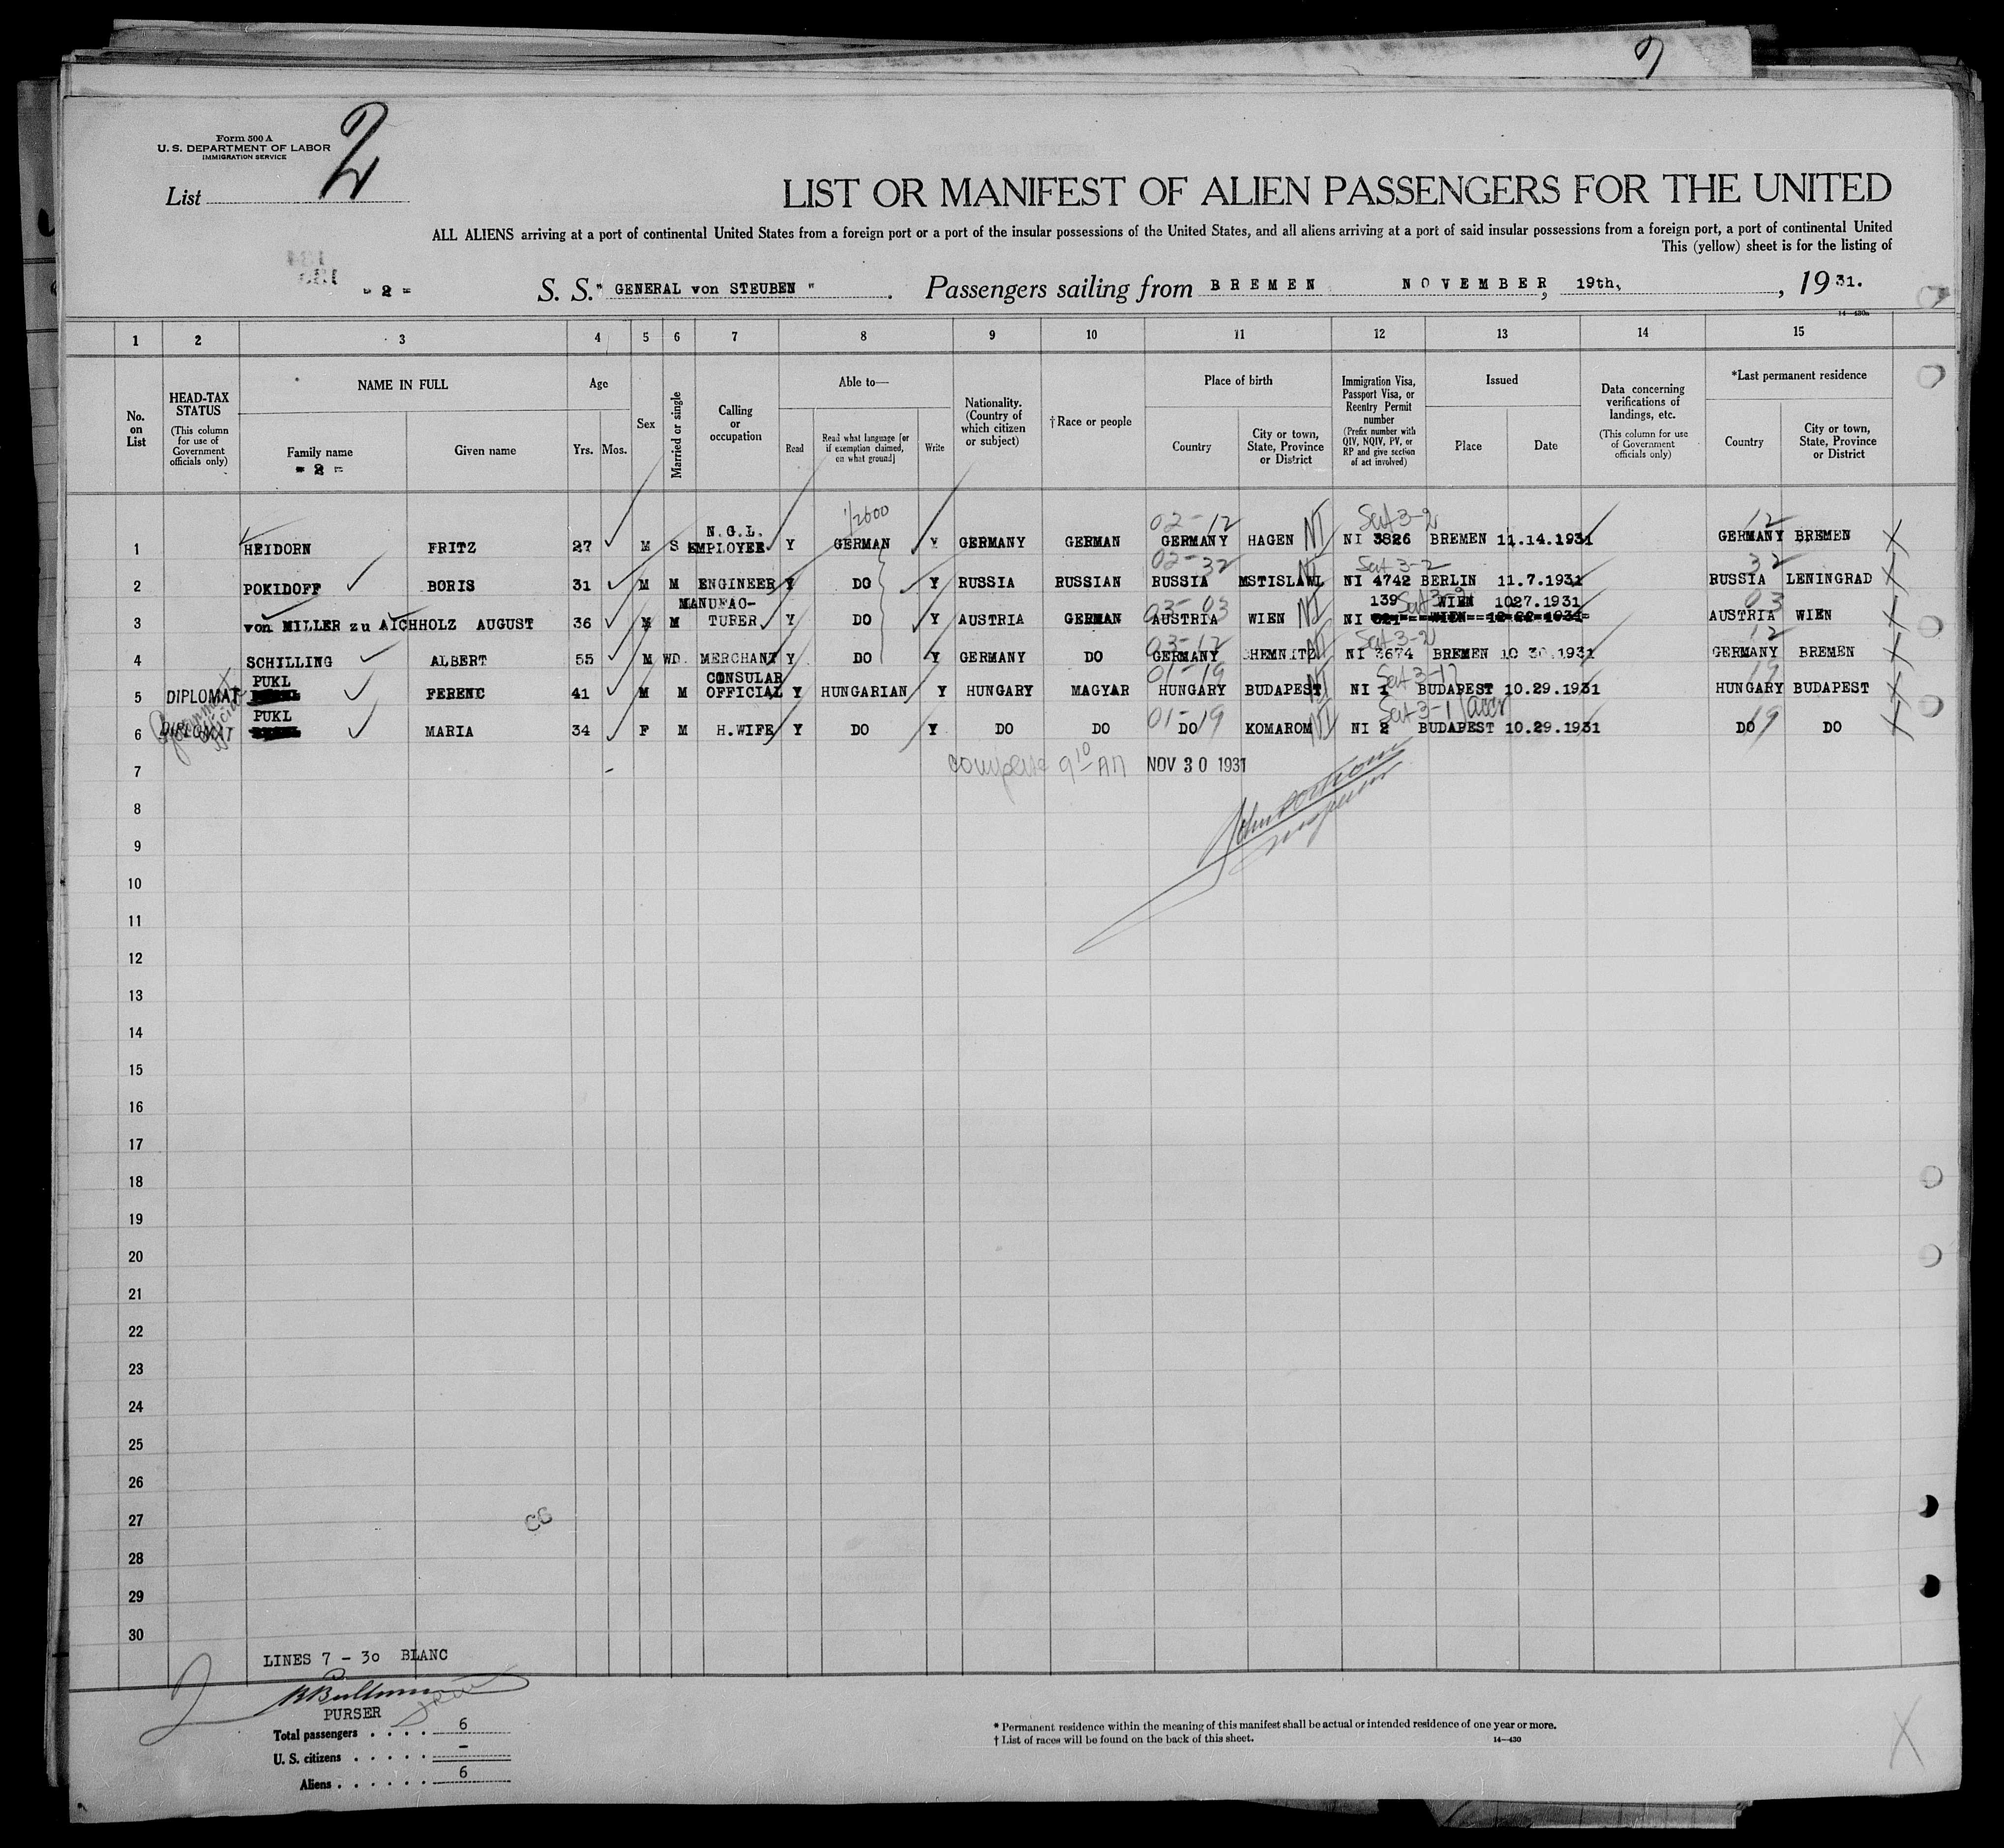 Form 500 A
U. S. DEPARTMENT OF LABOR
IMMIGRATION SERVICE
List 2
LIST OR MANIFEST OF ALIEN PASSENGERS FOR THE UNITED
ALL ALIENS arriving at a port of continental United States from a foreign port or a port of the insular possessions of the United States, and all aliens arriving at a port of said insular possessions from a foreign port, a port of continental United
This (yellow) sheet is for the listing of
- 2 - S. S. " GENERAL von STEUBEN ". Passengers sailing from BREMEN NOVEMBER, 19th, , 19 31.
14—430a
1 2 3 4 5 6 7 8 9 10 11 12 13 14 15
No. on List
HEAD-TAX STATUS
(This column for use of Government officials only)
NAME IN FULL
Family name
- 2 -
Given name
Age
Yrs. Mos.
Sex
Married or single
Calling or occupation
Able to—
Read
Read what language [or if exemption claimed, on what ground]
Write
Nationality. (Country of which citizen or subject)
† Race or people
Place of birth
Country
City or town, State, Province or District
Immigration Visa, Passport Visa, or Reentry Permit number
(Prefix number with QIV, NQIV, PV, or RP and give section of act involved)
Issued
Place
Date
Data concerning verifications of landings, etc.
(This column for use of Government officials only)
*Last permanent residence
Country
City or town, State, Province or District
1/2600 02-12 Sect 3-2 12
1 HEIDORN FRITZ 27 M S N.G.L. EMPLOYEE Y GERMAN Y GERMANY GERMAN GERMANY HAGEN NI NI 3826 BREMEN 11.14.1931 GERMANY BREMEN
02-32 Sect 3-2 32
2 POKIDOFF BORIS 31 M M ENGINEER Y DO Y RUSSIA RUSSIAN RUSSIA MSTISLAWL NI 4742 BERLIN 11.7.1931 RUSSIA LENINGRAD
03-03 139 Sect 3-2 WIEN 1027.1931 03
3 von MILLER zu AICHHOLZ AUGUST 36 M M MANUFAC-TURER Y DO Y AUSTRIA GERMAN AUSTRIA WIEN NI NI AUSTRIA WIEN
03-12 Sect 3-2 12
4 SCHILLING ALBERT 55 M WD. MERCHANT Y DO Y GERMANY DO GERMANY CHEMNITZ NI 3674 BREMEN 10 30.1931 GERMANY BREMEN
01-19 Sect 3-1 19
5 DIPLOMAT PUKL FERENC 41 M M CONSULAR OFFICIAL Y HUNGARIAN Y HUNGARY MAGYAR HUNGARY BUDAPEST NI 1 BUDAPEST 10.29.1931 HUNGARY BUDAPEST
01-19 Sect 3-1 19
6 DIPLOMAT PUKL MARIA 34 F M H.WIFE Y DO Y DO DO DO KOMAROM NI 2 BUDAPEST 10.29.1931 DO DO
7 9 10 AM NOV 30 1931
8
9
10
11
12
13
14
15
16
17
18
19
20
21
22
23
24
25
26
27
28
29
30
LINES 7 - 30 BLANC
PURSER
Total passengers . . . . 6
U. S. citizens . . . . . -
Aliens . . . . . . 6
* Permanent residence within the meaning of this manifest shall be actual or intended residence of one year or more.
† List of races will be found on the back of this sheet.
14—430